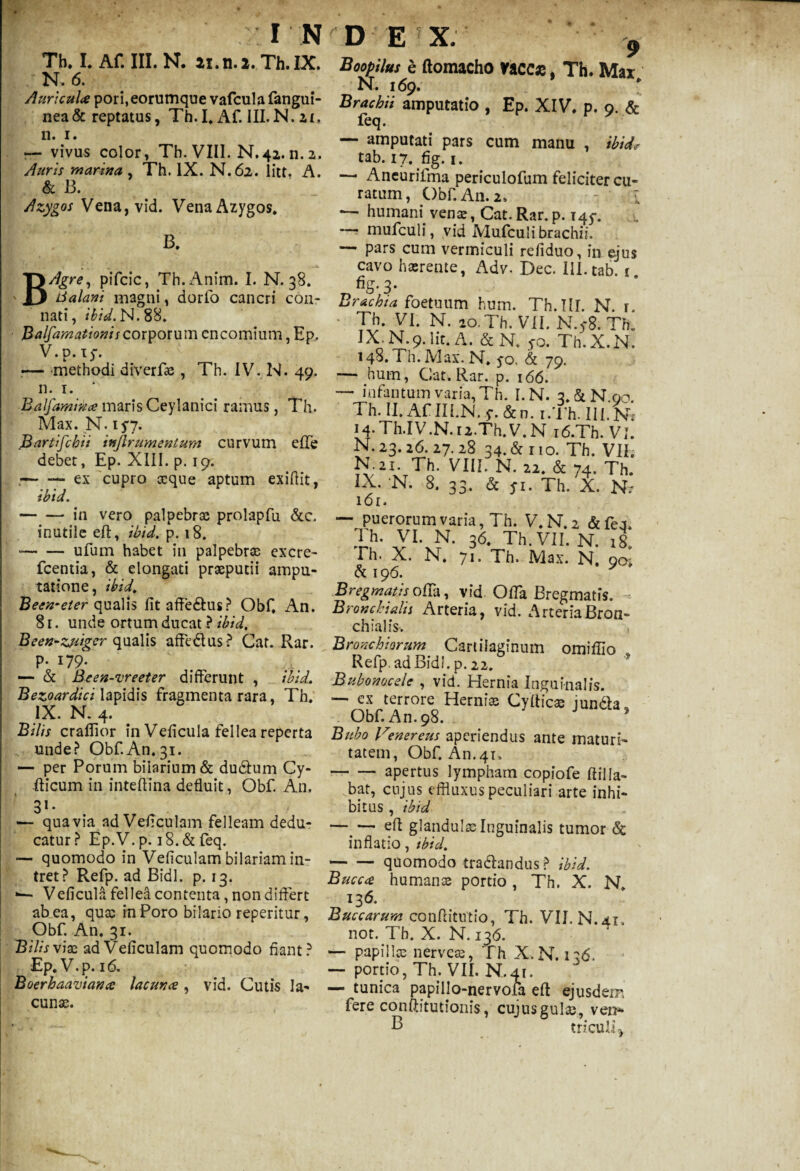 I N D E X. 9
Th. I. Af. III. N. 21. n. 2. Th. IX.
N. 6.
Auriculæ pori, eorumque vafcula fangui-
nea & reptatus, Th. I. Af. III. N. 21.
n. 1.
— vivus color, Th. VIII. N. 42. n. 2.
Auris marina, Th. IX. N. 62. litt. A.
& B.
Azygos Vena, vid. Vena Azygos.
B.
BAgre, pifcic, Th. Anim. I. N. 38.
Balani magni, dorfo cancri con-
nati, ibid. N. 88.
Balfamationis corporum encomium, Ep.
V. p. 15.
— methodi diverfæ, Th. IV. N. 49.
n. 1.
Balfaminæ maris Ceylanici ramus, Th.
Max. N. 157.
Bartifchii inftrumentum curvum effe
debet, Ep. XIII. p. 19.
— — ex cupro æque aptum exiftit,
ibid.
— — in vero palpebræ prolapfu &c.
inutile eft, ibid. p. 18.
— — ufum habet in palpebræ excre-
fcentia, & elongati præputii ampu-
tatione, ibid.
Been-eter qualis fit affectus? Obf. An.
81. unde ortum ducat? ibid.
Been-zuiger qualis affectus? Cat. Rar.
p. 179.
— & Been-vreeter differunt, ibid.
Bezoardici lapidis fragmenta rara, Th.
IX. N. 4.
Bilis craffior in Veficula fellea reperta
unde? Obf. An. 31.
— per Porum bilarium & ductum Cy-
fticum in inteftina defluit, Obf. An.
31.
— qua via ad Veficulam felleam dedu-
catur? Ep. V. p. 18. & feq.
— quomodo in Veficulam bilariam in-
tret? Refp. ad Bidl. p. 13.
— Veficulâ felleâ contenta, non differt
ab ea, quæ in Poro bilario reperitur,
Obf. An. 31.
Bilis viæ ad Veficulam quomodo fiant?
Ep. V. p. 16.
Boerhaavianæ lacunæ, vid. Cutis la-
cunæ.
Boopilus è ftomacho vaccæ, Th. Max.
N. 169.
Brachii amputatio, Ep. XIV. p. 9. &
feq.
— amputati pars cum manu, ibid.
tab. 17. fig. 1.
— Aneurifma periculofum feliciter cu-
ratum, Obf. An. 2.
— humani venæ, Cat. Rar. p. 145.
— mufculi, vid Mufculi brachii.
— pars cum vermiculi refiduo, in ejus
cavo hærente, Adv. Dec. III. tab. 1.
fig. 3.
Brachia foetuum hum. Th. III. N. 1.
Th. VI. N. 20. Th. VII. N. 58. Th.
IX. N. 9. lit. A. & N. 50. Th. X. N.
148. Th. Max. N. 50. & 79.
— hum, Cat. Rar. p. 166.
— infantum varia, Th. I. N. 3. & N. 90.
Th. II. Af III. N. 5. & n. 1. Th. III. N.
14. Th. IV. N. 12. Th. V. N 16. Th. VI.
N. 23. 26. 27. 28 34. & 110. Th. VII.
N. 21. Th. VIII. N. 22. & 74. Th.
IX. N. 8. 33. & 51. Th. X. N.
161.
— puerorum varia, Th. V. N. 2 & feq.
Th. VI. N. 36. Th. VII. N. 18.
Th. X. N. 71. Th. Max. N. 90.
& 196.
Bregmatis offa, vid Offa Bregmatis.
Bronchialis Arteria, vid. Arteria Bron-
chialis.
Bronchiorum Cartilaginum omiffio,
Refp. ad Bidl. p. 22.
Bubonocele, vid. Hernia Inguinalis.
— ex terrore Herniæ Cyfticæ juncta,
Obf. An. 98.
Bubo Venereus aperiendus ante maturi-
tatem, Obf. An. 41.
— — apertus lympham copiofe ftilla-
bat, cujus effluxus peculiari arte inhi-
bitus, ibid
— — eft glandulæ Inguinalis tumor &
inflatio, ibid.
— — quomodo tractandus? ibid.
Buccæ humanæ portio, Th. X. N.
136.
Buccarum conftitutio, Th. VII. N. 41.
not. Th. X. N. 136.
— papillæ nerveæ, Th X. N. 136.
— portio, Th. VII. N. 41.
— tunica papillo-nervofa eft ejusdem
fere conftitutionis, cujus gulæ, ven-
B triculi,